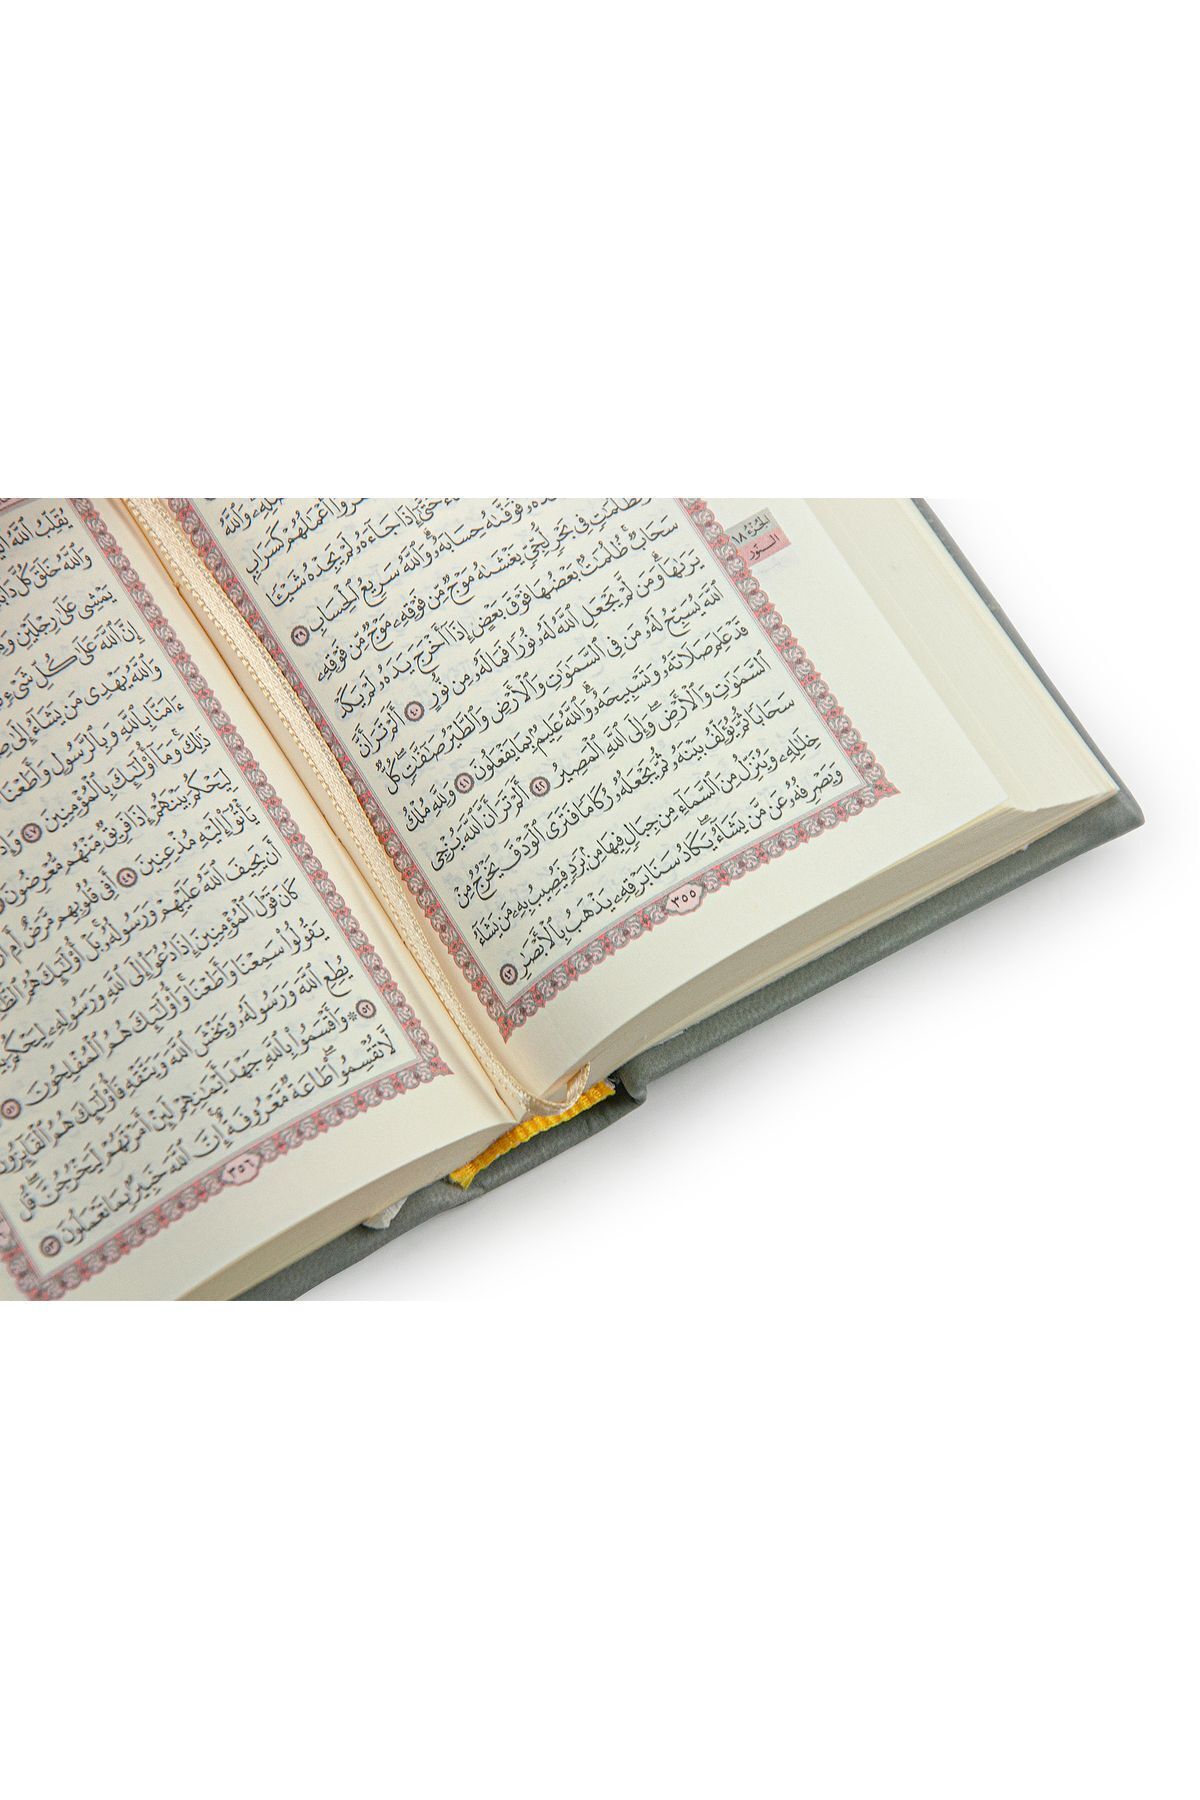 ٱلجُزْءُ ١٨
النُّور
أَعْمَٰلُهُمْ كَسَرَابٍ
حَتَّىٰٓ إِذَا جَآءَهُۥ لَمْ يَجِدْهُ شَيْـًٔا
فَوَفَّىٰهُ حِسَابَهُۥۗ وَٱللَّهُ سَرِيعُ ٱلْحِسَابِ ٣٩
كَظُلُمَٰتٍ فِى بَحْرٍ لُّجِّىٍّ يَغْشَىٰهُ مَوْجٌ مِّن فَوْقِهِۦ مَوْجٌ مِّن فَوْقِهِۦ
سَحَابٌۚ ظُلُمَٰتٌۢ بَعْضُهَا فَوْقَ بَعْضٍ إِذَآ أَخْرَجَ يَدَهُۥ لَمْ يَكَدْ
يَرَىٰهَاۗ وَمَن لَّمْ يَجْعَلِ ٱللَّهُ لَهُۥ نُورًا فَمَا لَهُۥ مِن نُّورٍ ٤٠ أَلَمْ تَرَ أَنَّ
ٱللَّهَ يُسَبِّحُ لَهُۥ مَن فِى ٱلسَّمَٰوَٰتِ وَٱلْأَرْضِ وَٱلطَّيْرُ صَٰٓفَّٰتٍۖ كُلٌّ
قَدْ عَلِمَ صَلَاتَهُۥ وَتَسْبِيحَهُۥۗ وَٱللَّهُ عَلِيمٌۢ بِمَا يَفْعَلُونَ ٤١ وَلِلَّهِ مُلْكُ
ٱلسَّمَٰوَٰتِ وَٱلْأَرْضِۖ وَإِلَى ٱللَّهِ ٱلْمَصِيرُ ٤٢ أَلَمْ تَرَ أَنَّ ٱللَّهَ يُزْجِى
سَحَابًا ثُمَّ يُؤَلِّفُ بَيْنَهُۥ ثُمَّ يَجْعَلُهُۥ رُكَامًا فَتَرَى ٱلْوَدْقَ يَخْرُجُ مِنْ
خِلَٰلِهِۦ وَيُنَزِّلُ مِنَ ٱلسَّمَآءِ مِن جِبَالٍ فِيهَا مِنۢ بَرَدٍ فَيُصِيبُ بِهِۦ مَن يَشَآءُ
وَيَصْرِفُهُۥ عَن مَّن يَشَآءُۖ يَكَادُ سَنَا بَرْقِهِۦ يَذْهَبُ بِٱلْأَبْصَٰرِ ٤٣
٣٥٥
يُقَلِّبُ ٱللَّهُ
وَٱللَّهُ خَلَقَ كُلَّ
يَمْشِى عَلَىٰ رِجْلَيْنِ
إِنَّ ٱللَّهَ عَلَىٰ كُلِّ شَىْءٍ
وَٱللَّهُ يَهْدِى مَن يَشَآءُ إِلَىٰ
ءَامَنَّا بِٱللَّهِ وَبِٱلرَّسُولِ وَأَطَعْنَا
ذَٰلِكَۚ وَمَآ أُو۟لَٰٓئِكَ بِٱلْمُؤْمِنِينَ ٤٧
لِيَحْكُمَ بَيْنَهُمْ إِذَا فَرِيقٌ مِّنْهُم مُّعْرِضُونَ
يَأْتُوٓا۟ إِلَيْهِ مُذْعِنِينَ ٤٩ أَفِى قُلُوبِهِم مَّرَضٌ أَمِ
أَن يَحِيفَ ٱللَّهُ عَلَيْهِمْ وَرَسُولُهُۥۚ بَلْ أُو۟لَٰٓئِكَ هُمُ
كَانَ قَوْلَ ٱلْمُؤْمِنِينَ إِذَا دُعُوٓا۟ إِلَى ٱللَّهِ وَرَسُولِهِۦ لِيَحْكُمَ
يَقُولُوا۟ سَمِعْنَا وَأَطَعْنَاۚ وَأُو۟لَٰٓئِكَ هُمُ ٱلْمُفْلِحُونَ ٥١
يُطِعِ ٱللَّهَ وَرَسُولَهُۥ وَيَخْشَ ٱللَّهَ وَيَتَّقْهِ فَأُو۟لَٰٓئِكَ هُمُ ٱلْفَآئِزُونَ
٥٢ ۞ وَأَقْسَمُوا۟ بِٱللَّهِ جَهْدَ أَيْمَٰنِهِمْ لَئِنْ أَمَرْتَهُمْ لَيَخْرُجُنَّۖ قُل
لَّا تُقْسِمُوا۟ۖ طَاعَةٌ مَّعْرُوفَةٌۚ إِنَّ ٱللَّهَ خَبِيرٌۢ بِمَا تَعْمَلُونَ ٥٣
٣٥٦